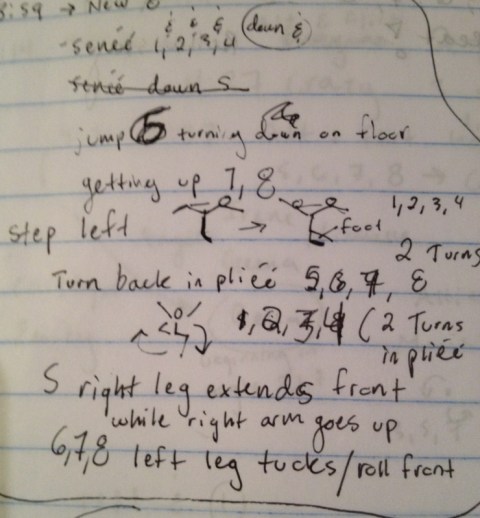 → New
& & & &
-seneé 1, 2, 3, 4 down &
seneé down 5
jump 5 turning down on floor
getting up 7, 8
step left → foot 1, 2, 3, 4
2 Turns
Turn back in plieé 5, 6, 7, 8
1, 2, 3, 4 ( 2 Turns
in plieé
5 right leg extends front
while right arm goes up
6,7,8 left leg tucks/roll front